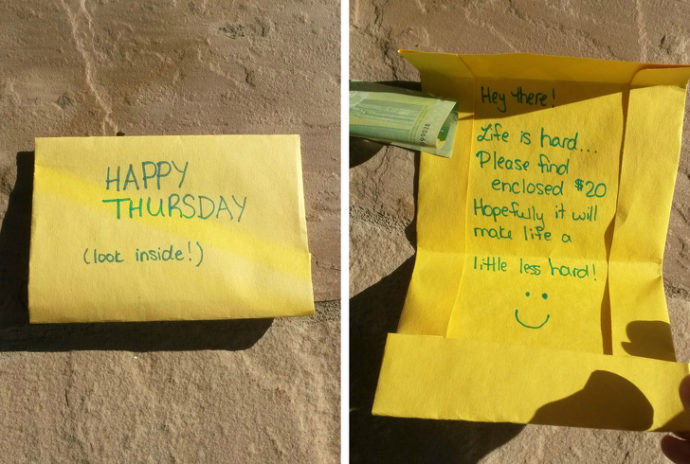 HAPPY
THURSDAY
(look inside!)
Hey there!
Life is hard...
Please find
enclosed $20
Hopefully it will
make life a
little less hard!